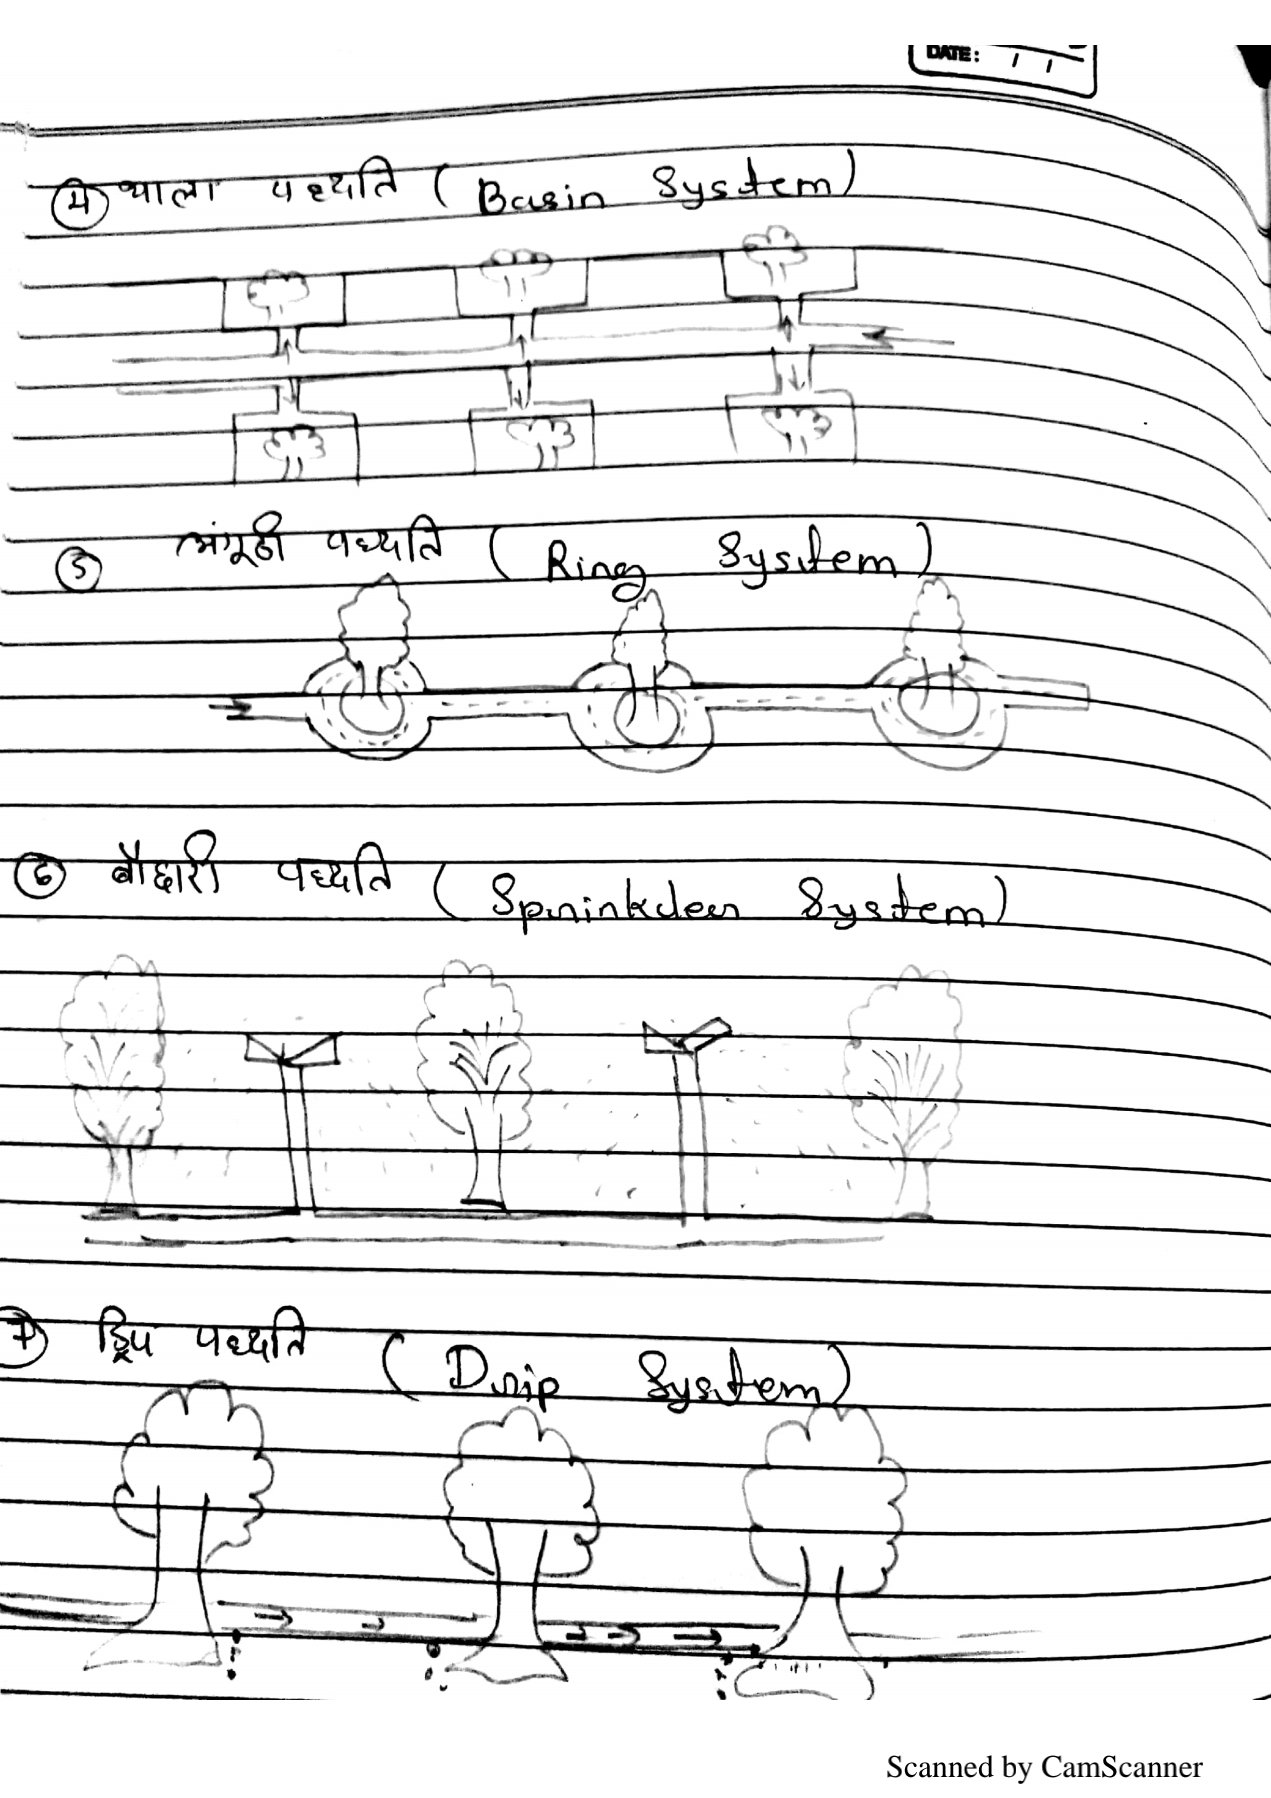 DATE: / /
④ थाला पध्दति ( Basin System )
⑤ अंगूठी पध्दति ( Ring System )
⑥ बौछारी पध्दति ( Sprinkler System )
⑦ ड्रिप पध्दति ( Drip System )
Scanned by CamScanner